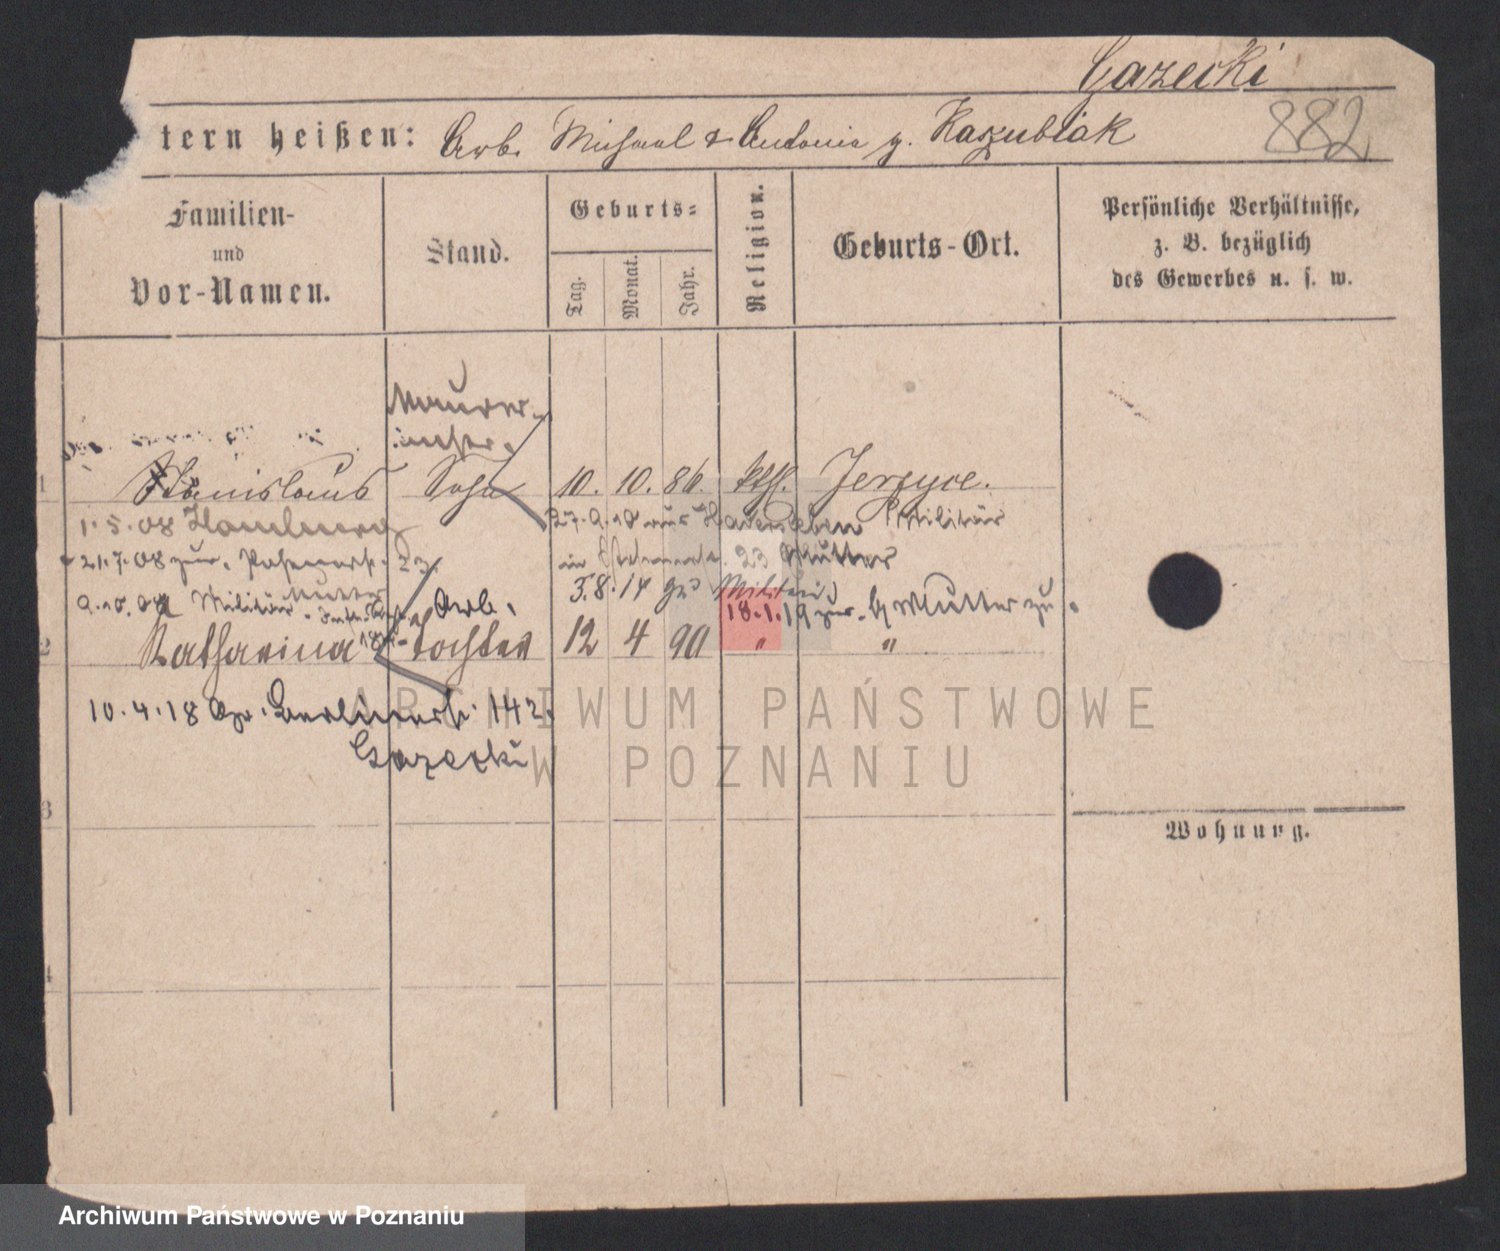 Gazecki
tern heißen: Arb. Michael & Antonie g. Kaszubiak 882
Familien-
und
Vor-Namen.
Stand.
Geburts-
Tag. Monat. Jahr.
Religion.
Geburts-Ort.
Persönliche Verhältnisse,
z. B. bezüglich
des Gewerbes u. s. w.
Maurer-
1 Stanislaus Sohn 10. 10. 86. kth. Jerzyce.
1.5.08 Hamburg 27.9.10 aus Militär
21.7.08 zur. 23. in 23 Mutter
9.10. Militär Mutter Arb. 3.8.14 zu Militär
18.1.19 zur. Mutter zu
2 Katharina Tochter 12 4 90 " "
10.4.18 142.
Gazecki
3
4
Wohnung.
ARCHIWUM PAŃSTWOWE
W POZNANIU
Archiwum Państwowe w Poznaniu